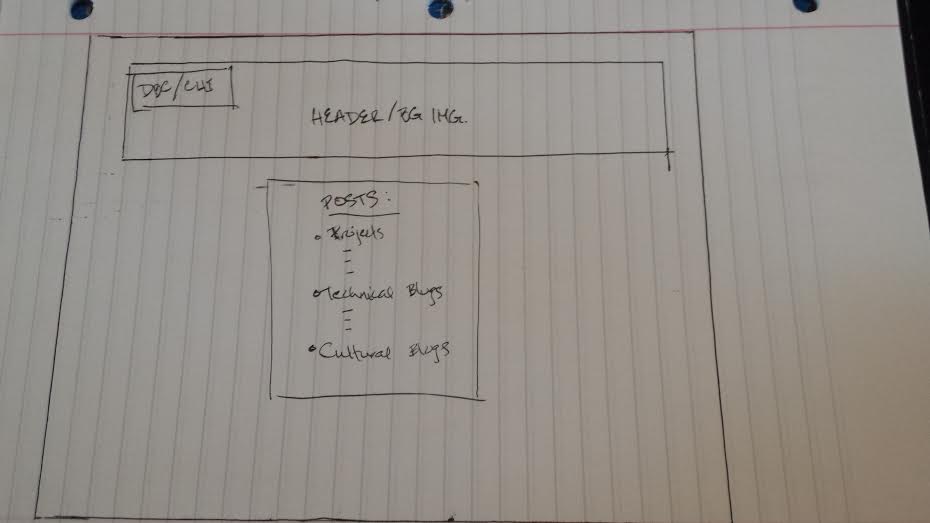 DBC/CHI
HEADER/BG IMG.
POSTS:
• Projects
• Technical Blogs
• Cultural Blogs